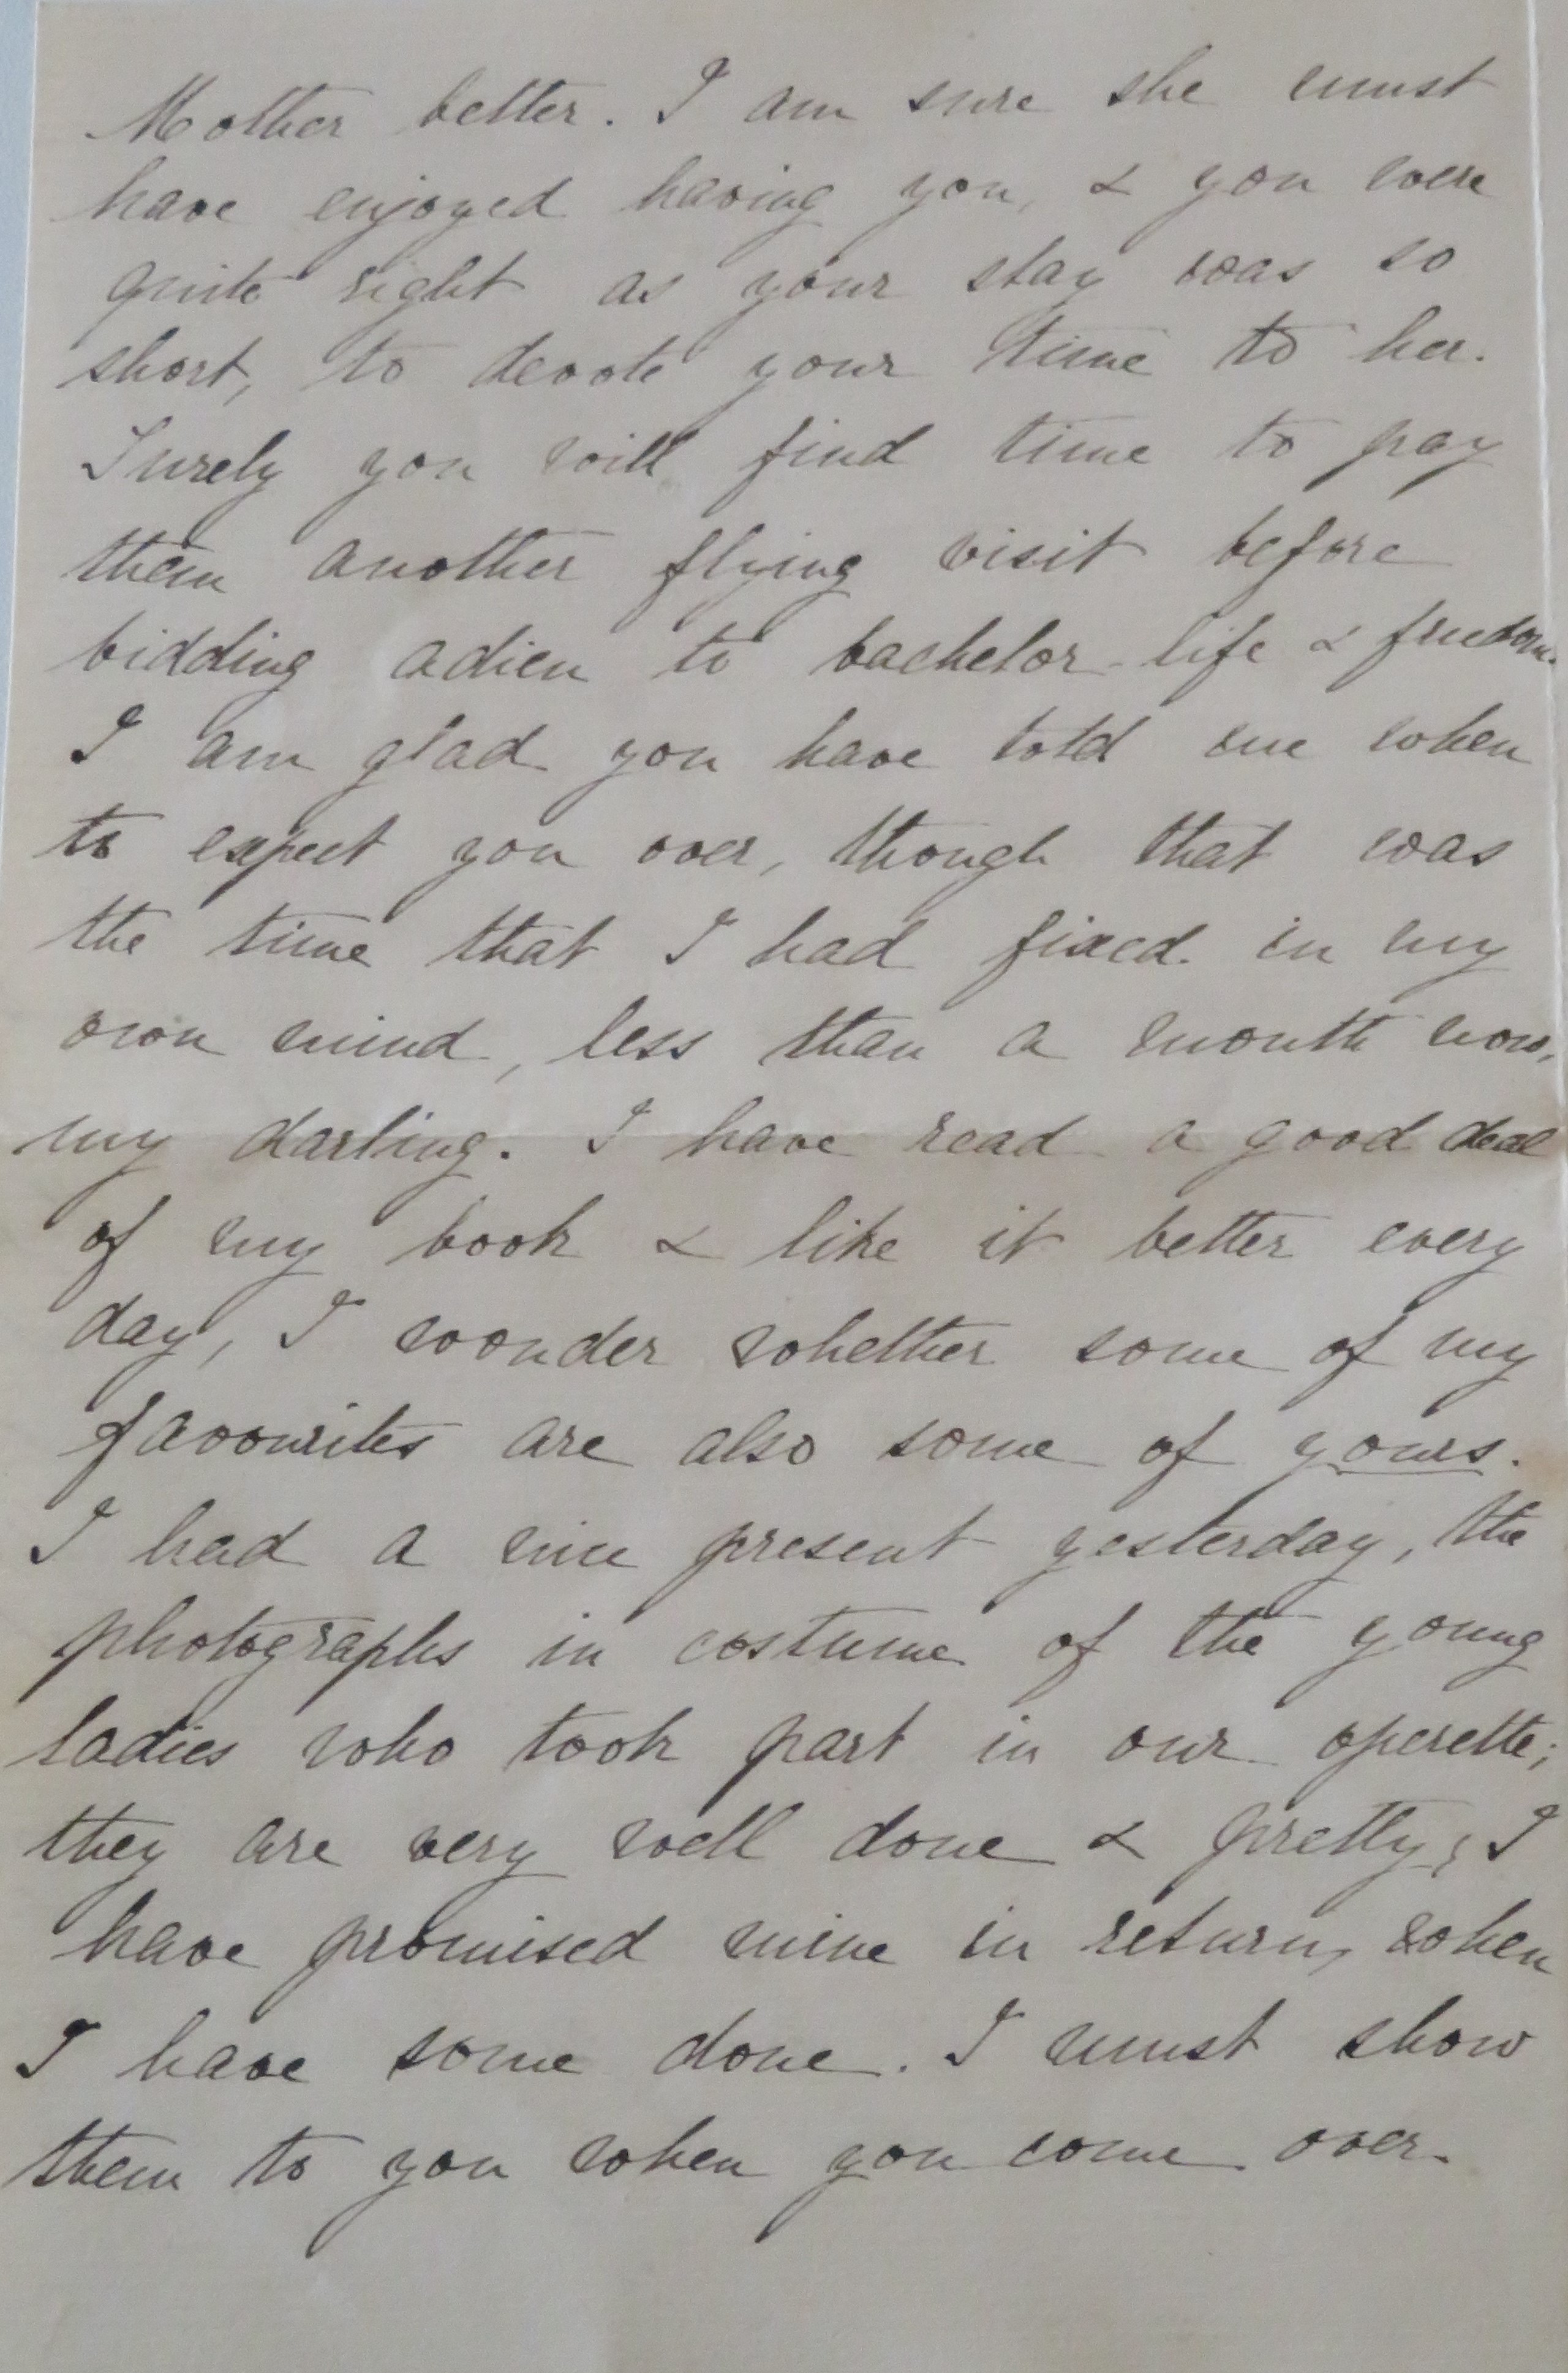 Mother better. I am sure she must
have enjoyed having you, & you were
quite right as your stay was so
short, to devote your time to her.
Surely you will find time to pay
them another flying visit before
bidding adieu to bachelor life & freedom.
I am glad you have told me when
to expect you over, though that was
the time that I had fixed in my
own mind, less than a month now,
my darling. I have read a good deal
of my book & like it better every
day, I wonder whether some of my
favourites are also some of yours.
I had a nice present yesterday, the
photographs in costume of the young
ladies who took part in our operette;
they are very well done & pretty; I
have promised mine in return, when
I have some done. I must show
them to you when you come over.